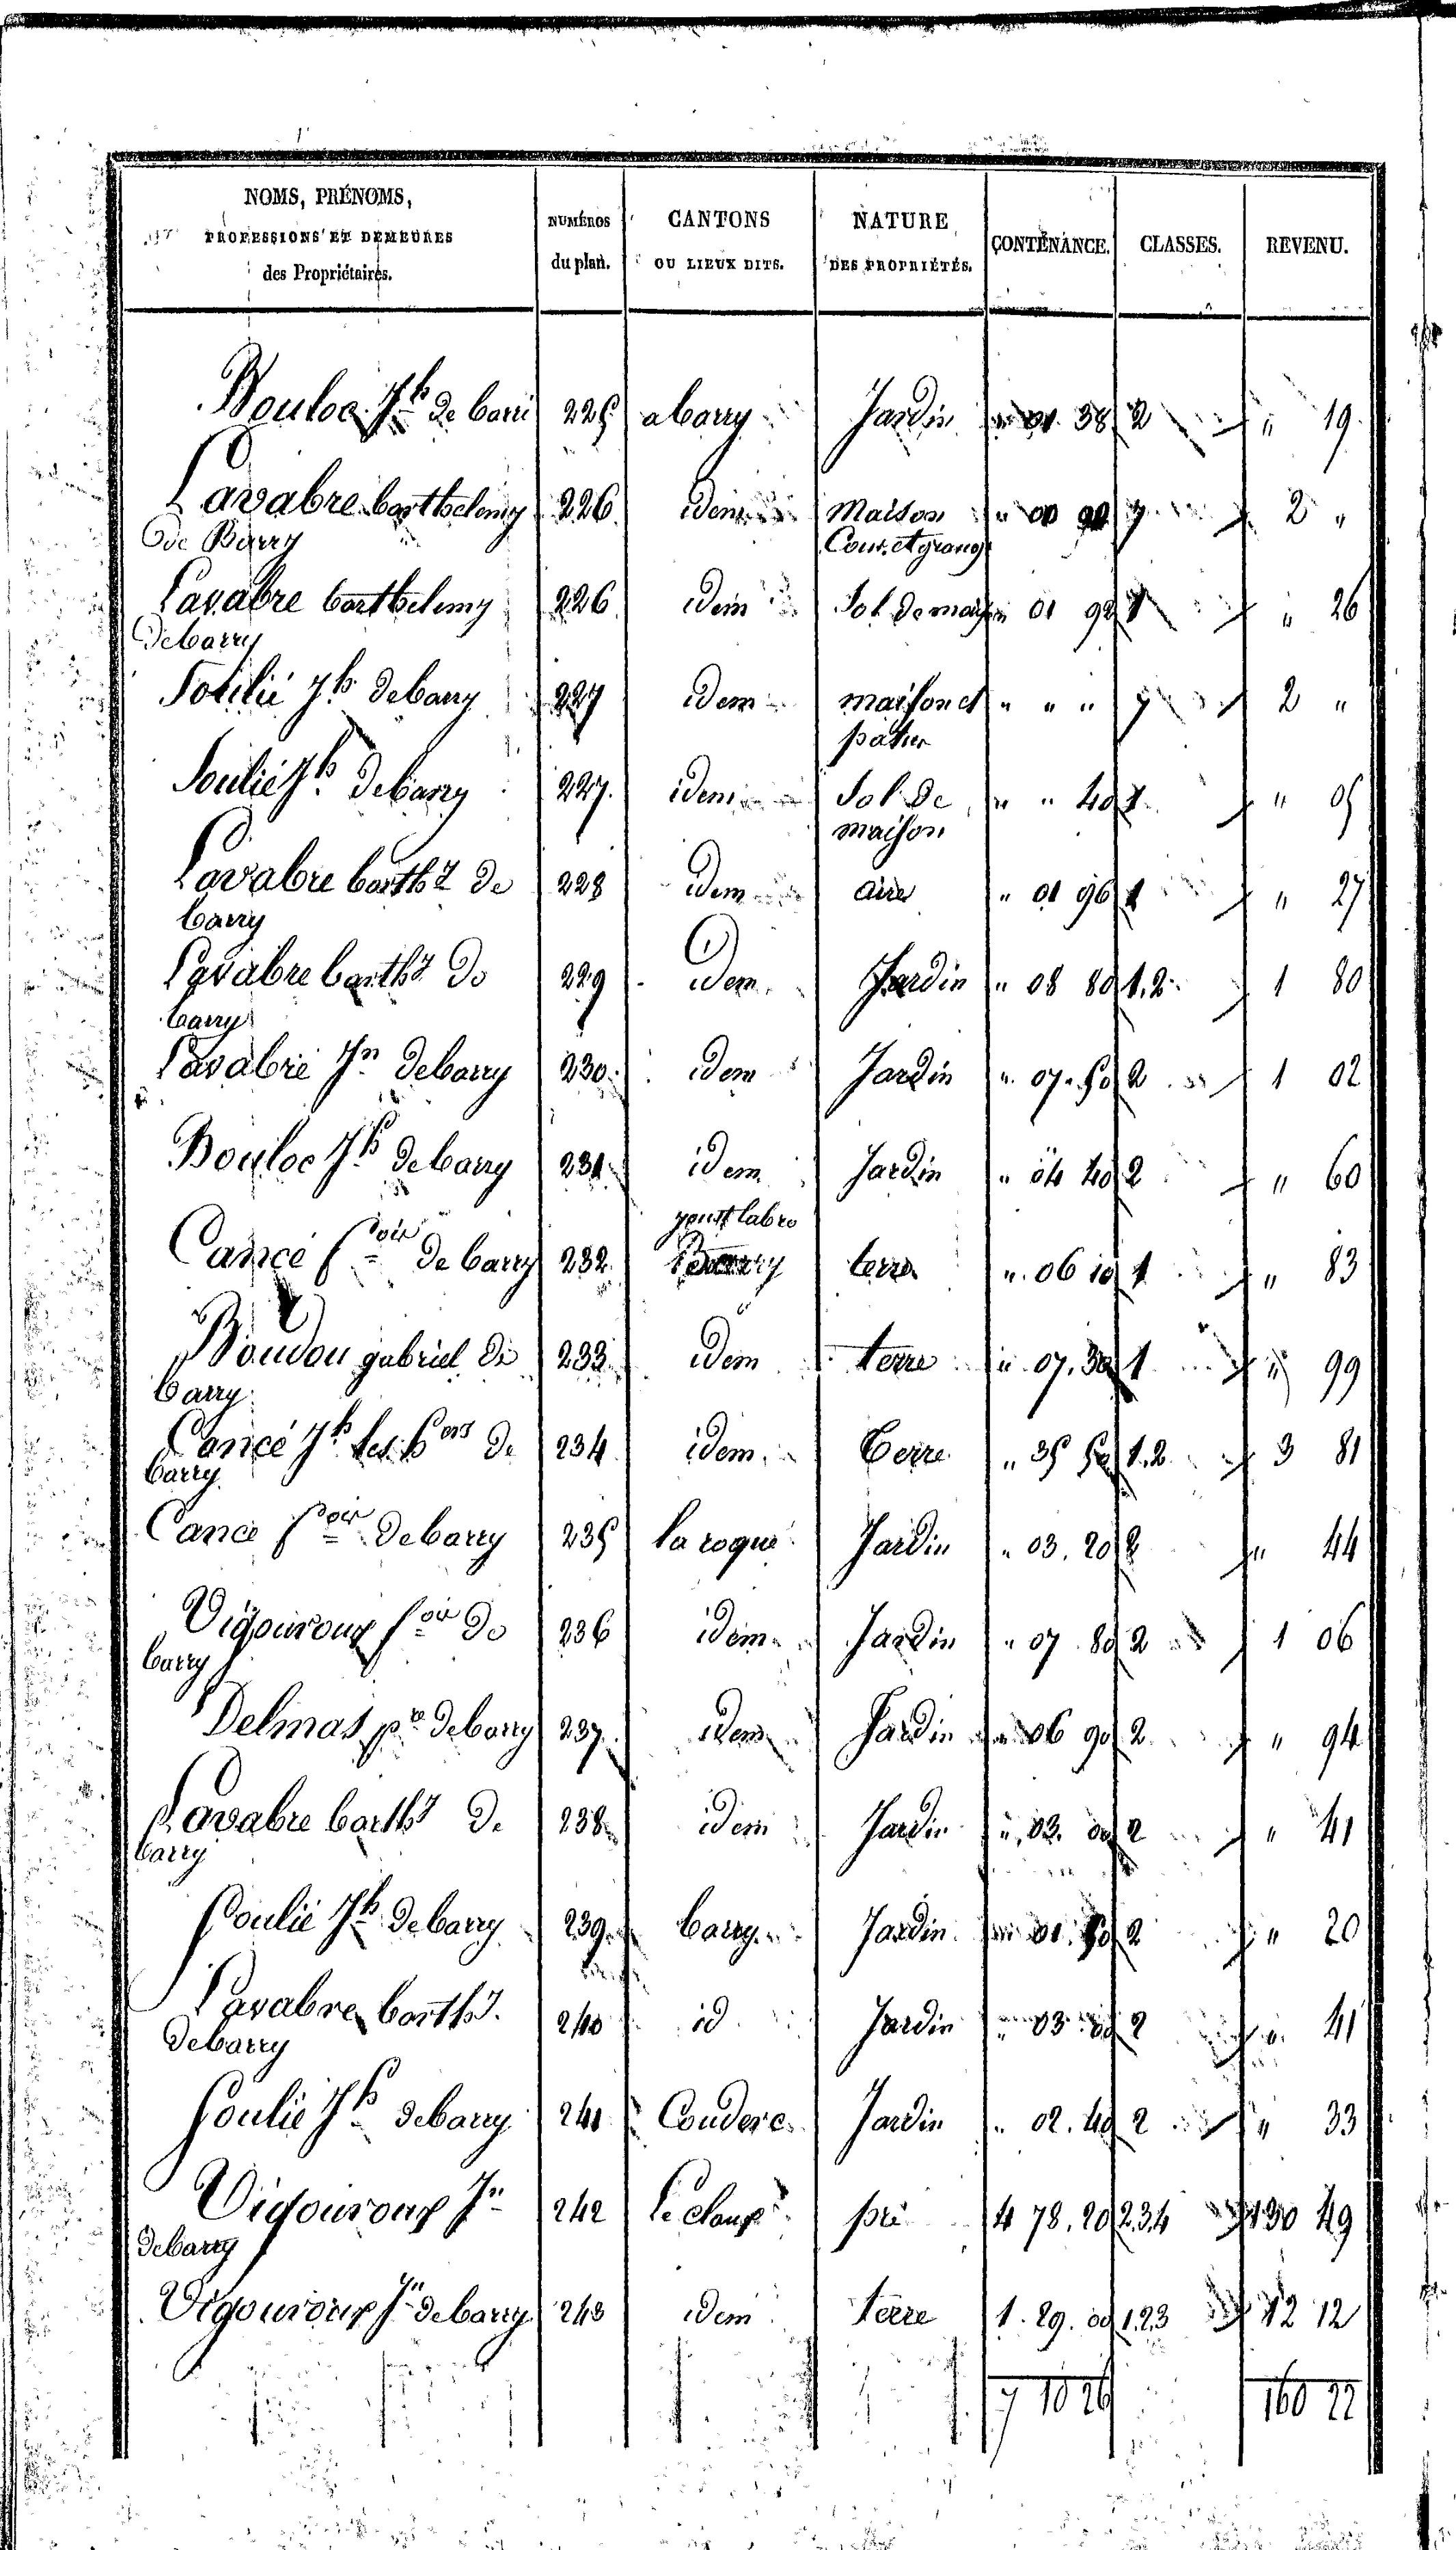 NOMS, PRÉNOMS, PROFESSIONS ET DEMEURES des Propriétaires. NUMÉROS du plan. CANTONS OU LIEUX DITS. NATURE DES PROPRIÉTÉS. CONTENANCE. CLASSES. REVENU.
Bouloc Jh de barri 225 a barry Jardin " 01 38 2 " 19
Lavabre barthelemy 226 idem Maison " 00 7 2 "
de Barry Cour et grang
Lavabre barthelemy 226 idem Sol de mais " 01 92 1 " 26
de barry
Soulié Jh de barry 227 idem maison et " " " 7 2 "
patus
Soulié Jh de barry 227. idem Sol de " " 40 1 " 05
maison
Lavabre barthy de 228 idem aire " 01 96 1 " 27
barry
Lavabre barthy de 229 idem Jardin " 08 80 1.2 1 80
barry
Lavabre Jn de barry 230 idem Jardin " 07.50 2 1 02
Bouloc Jh de barry 231 idem Jardin " 04 40 2 " 60
labro
Cancé foix de barry 232 Barry terre " 06 10 1 " 83
Boudou gabriel de 233 idem terre " 07.30 1 " 99
barry
Cancé Jh de 234 idem terre " 35 50 1.2 3 81
barry
Cance foix de barry 235 la roque Jardin " 03.20 2 " 44
Vigouroux foix de 236 idem Jardin " 07 80 2 1 06
barry
Delmas pre de barry 237 idem Jardin " 06 90 2 " 94
Lavabre barthy de 238 idem Jardin " 03. 00 2 " 41
barry
Soulié Jh de barry 239 barry Jardin " 01.50 2 " 20
Lavabre barthy. 240 id Jardin " 03 00 2 " 41
de barry
Soulié Jh de barry 241 Couderc Jardin " 02.40 2 " 33
Vigouroux Jn 242 le claux pré 4 78.20 2.3.4 130 49
de barry
Vigouroux Jn de barry 243 idem terre 1.29.00 1.2.3 12 12
7 10 26 160 22